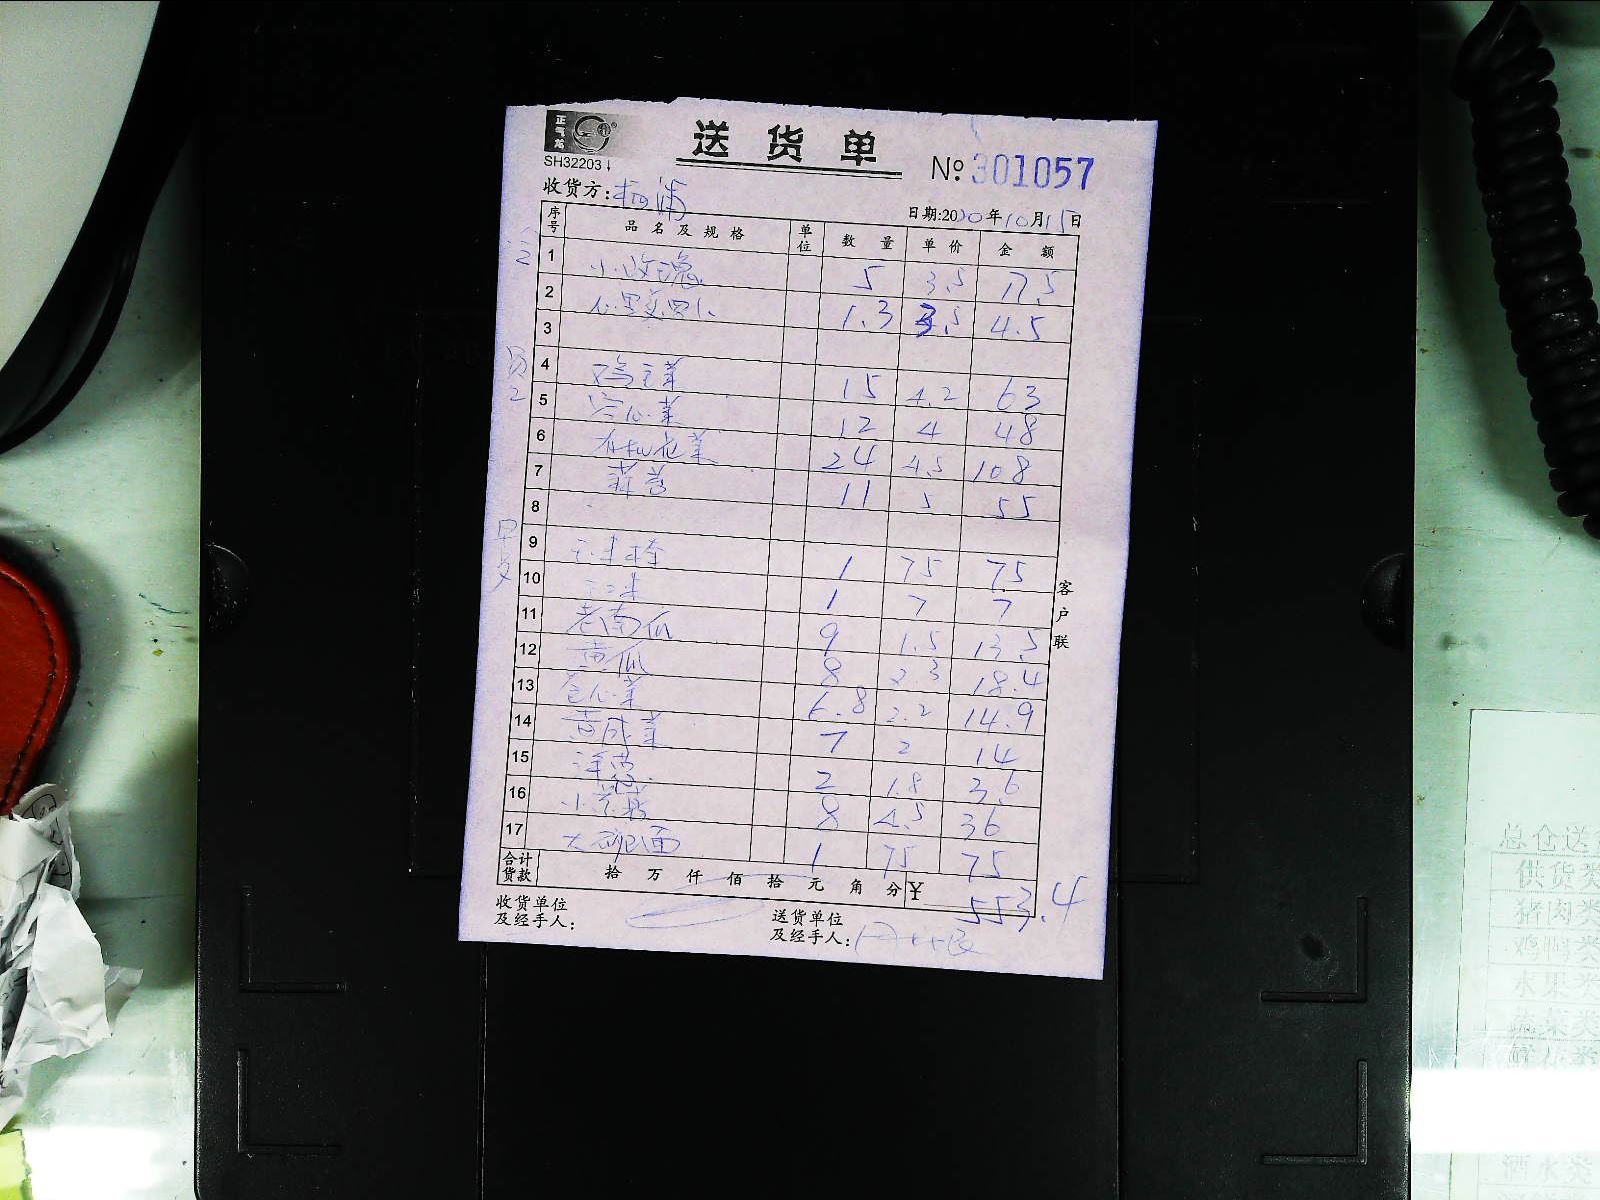 正气龙
SH32203
送货单
№ 301057
收货方:杨浦
日期:2020年10月15日
序号 品名及规格 单位 数量 单价 金额
1 小玫瑰 5 3.5 17.5
2 心里美罗卜 1.3 3.5 4.5
3
4 鸡毛菜 15 4.2 63
5 空心菜 12 4 48
6 有机花菜 24 4.5 108
7 蒜苔 11 5 55
8
9 玉米棒 1 75 75
10 玉米 1 7 7
11 老南瓜 9 1.5 13.5
12 黄瓜 8 2.3 18.4
13 卷心菜 6.8 2.2 14.9
14 7 2 14
15 洋葱 2 1.8 3.6
16 8 4.5 36
17 大碗面 1 75 75
合计货款 拾 万 仟 佰 拾 元 角 分 ¥ 553.4
收货单位及经手人:
送货单位及经手人:
客户联
员2
早点
总仓送
供货类
猪肉类
鸡鸭类
水果类
蔬菜类
酒水类